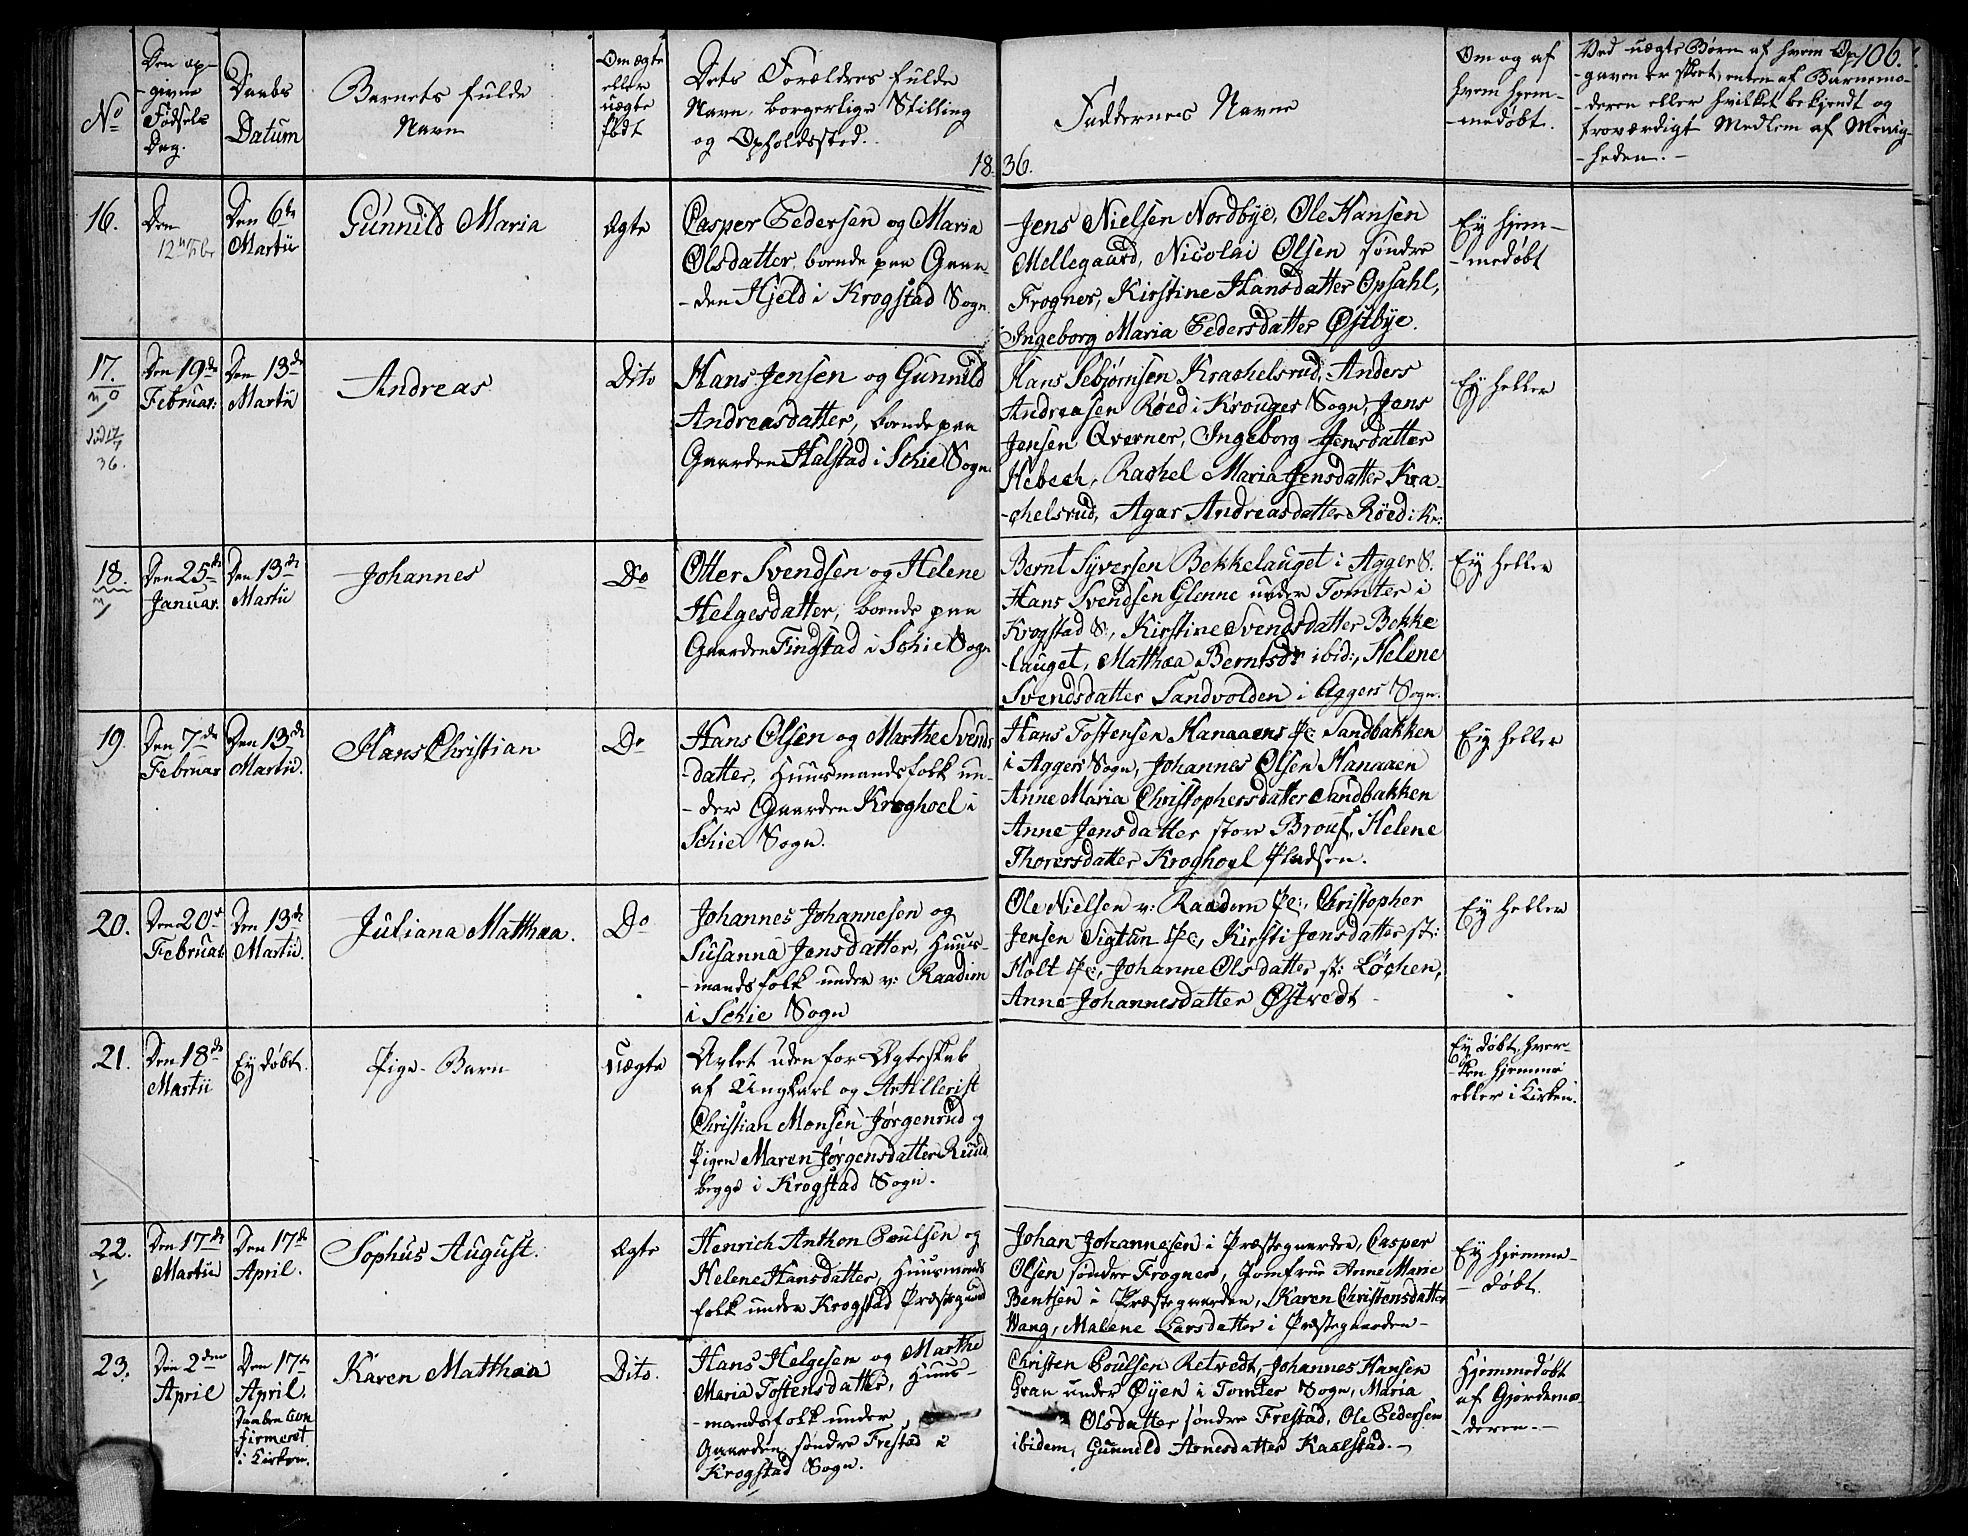 106.
No
Den op-
-givne
Fødsels
Dag.
Daabs
Datum
Barnets fulde
Navn
Om ægte
eller
uægte
født
Dets Forældres fulde
Navn, borgerlige Stilling
og Opholdssted.
Faddernes Navne
Om og af
hvem hjem-
-medøbt.
Ved uægte Børn af hvem Op-
-gaven er skeet, enten af Barnemo-
-deren eller hvilket bekjendt og
troværdigt Medlem af Menig-
-heden.-
1836.
16.
Den
Den 6te
Martii
Gunnild Maria
Ægte
Casper Pedersen og Maria
Olsdatter, boende paa Gaar-
-den Hjeld i Krogstad Sogn
Jens Nielsen Nordbye, Ole Hansen
Mellegaard, Nicolai Olsen søndre
Frogner, Kirstine Hansdatter Opsahl,
Ingeborg Maria Pedersdatter Østbye.
Ey hjem-
-medøbt
17.
36.
Den 19de
Februar.
Den 13de
Martii
Andreas
Dito
Hans Jensen og Gunnild
Andreasdatter, boende paa
Gaarden Halstad i Schie Sogn.
Hans Sebjørnsen Krachelsrud, Anders
Andreasen Røed i Krouger Sogn, Jens
Jensen Qverner, Ingeborg Jensdatter
Hebech, Rachel Maria Jensdatter Kra-
-chelsrud, Agar Andreasdatter Røed i Kr:
Ey heller
18.
Den 25de
Januar.
Den 13de
Martii
Johannes
Do
Otter Svendsen og Helene
Helgesdatter, boende paa
Gaarden Fingstad i Schie Sogn
Bernt Syversen Bekkelauget i Agger S.
Hans Svendsen Glenne under Tomter i
Krogstad S:, Kirstine Svendsdatter Bekke
-lauget, Mathæa Berntsdr ibid:, Helene
Svendsdatter Sandvolden i Aggers Sogn.
Ey heller
19.
Den 7de
Februar
Den 13de
Martii.
Hans Christian
Do
Hans Olsen og Marthe Svends
-datter, Huusmandsfolk un-
-der Gaarden Kroghoel i
Schie Sogn.
Hans Tostensen Kanaaens Pl: Sandbakken
i Aggers Sogn, Johannes Olsen Kanaaen
Anne Maria Christophersdatter Sandbakken
Anne Jensdatter store Brouf, Helene
Thorersdatter Kroghoel Pladsen.
Ey heller
20.
Den 20de
Februar
Den 13de
Martii.
Juliana Matthæa.
Do
Johannes Johannesen og
Susanna Jensdatter, Huus-
-mandsfolk under v: Raadim
i Schie Sogn
Ole Nielsen v: Raadem Pl:, Christopher
Jensen Sigtun Pl:, Kirsti Jensdatter st:
Holt Pl:, Johanne Olsdatter st: Løchen,
Anne Johannesdatter Østvedt -
Ey heller
21.
Den 18de
Martii
Ey døbt.
Pige-Barn
Uægte
Avlet uden for Ægteskab
af Ungkarl og Artillerist
Christian Monsen Jørgenrud og
Pigen Maren Jørgensdatter Ruud
begge i Krogstad Sogn.
Ey døbt, hver-
-ken hjemme
eller i Kirken.
22.
Den 17de
Martii
Den 17de
April.
Sophus August.
Ægte
Henrich Anthon Poulsen og
Helene Hansdatter, Huusmands
folk under Krogstad Præstegaard
Johan Johannesen i Præstegaarden, Casper
Olsen søndre Frogner, Jomfrue Anne Marie
Bentsen i Præstegaarden, Karen Christensdatter
Wang, Malene Larsdatter i Præstegaarden-
Ey hjemme-
-døbt.
23.
Den 2den
April
Den 17de
April.
Daaben Con
firmeret
i Kirken.
Karen Matthæa
Dito.
Hans Helgesen og Marthe
Maria Tostensdatter, Huus-
-mandsfolk under
Gaarden søndre Frestad i
Krogstad Sogn.
Christen Poulsen Retvedt, Johannes Hansen
Gran under Øyen i Tomter Sogn, Maria
Olsdatter søndre Frestad, Ole Pedersen
ibidem, Gunnild Arnesdatter Kaalstad.-
Hjemmedøbt
af Gjordemo-
-deren.-